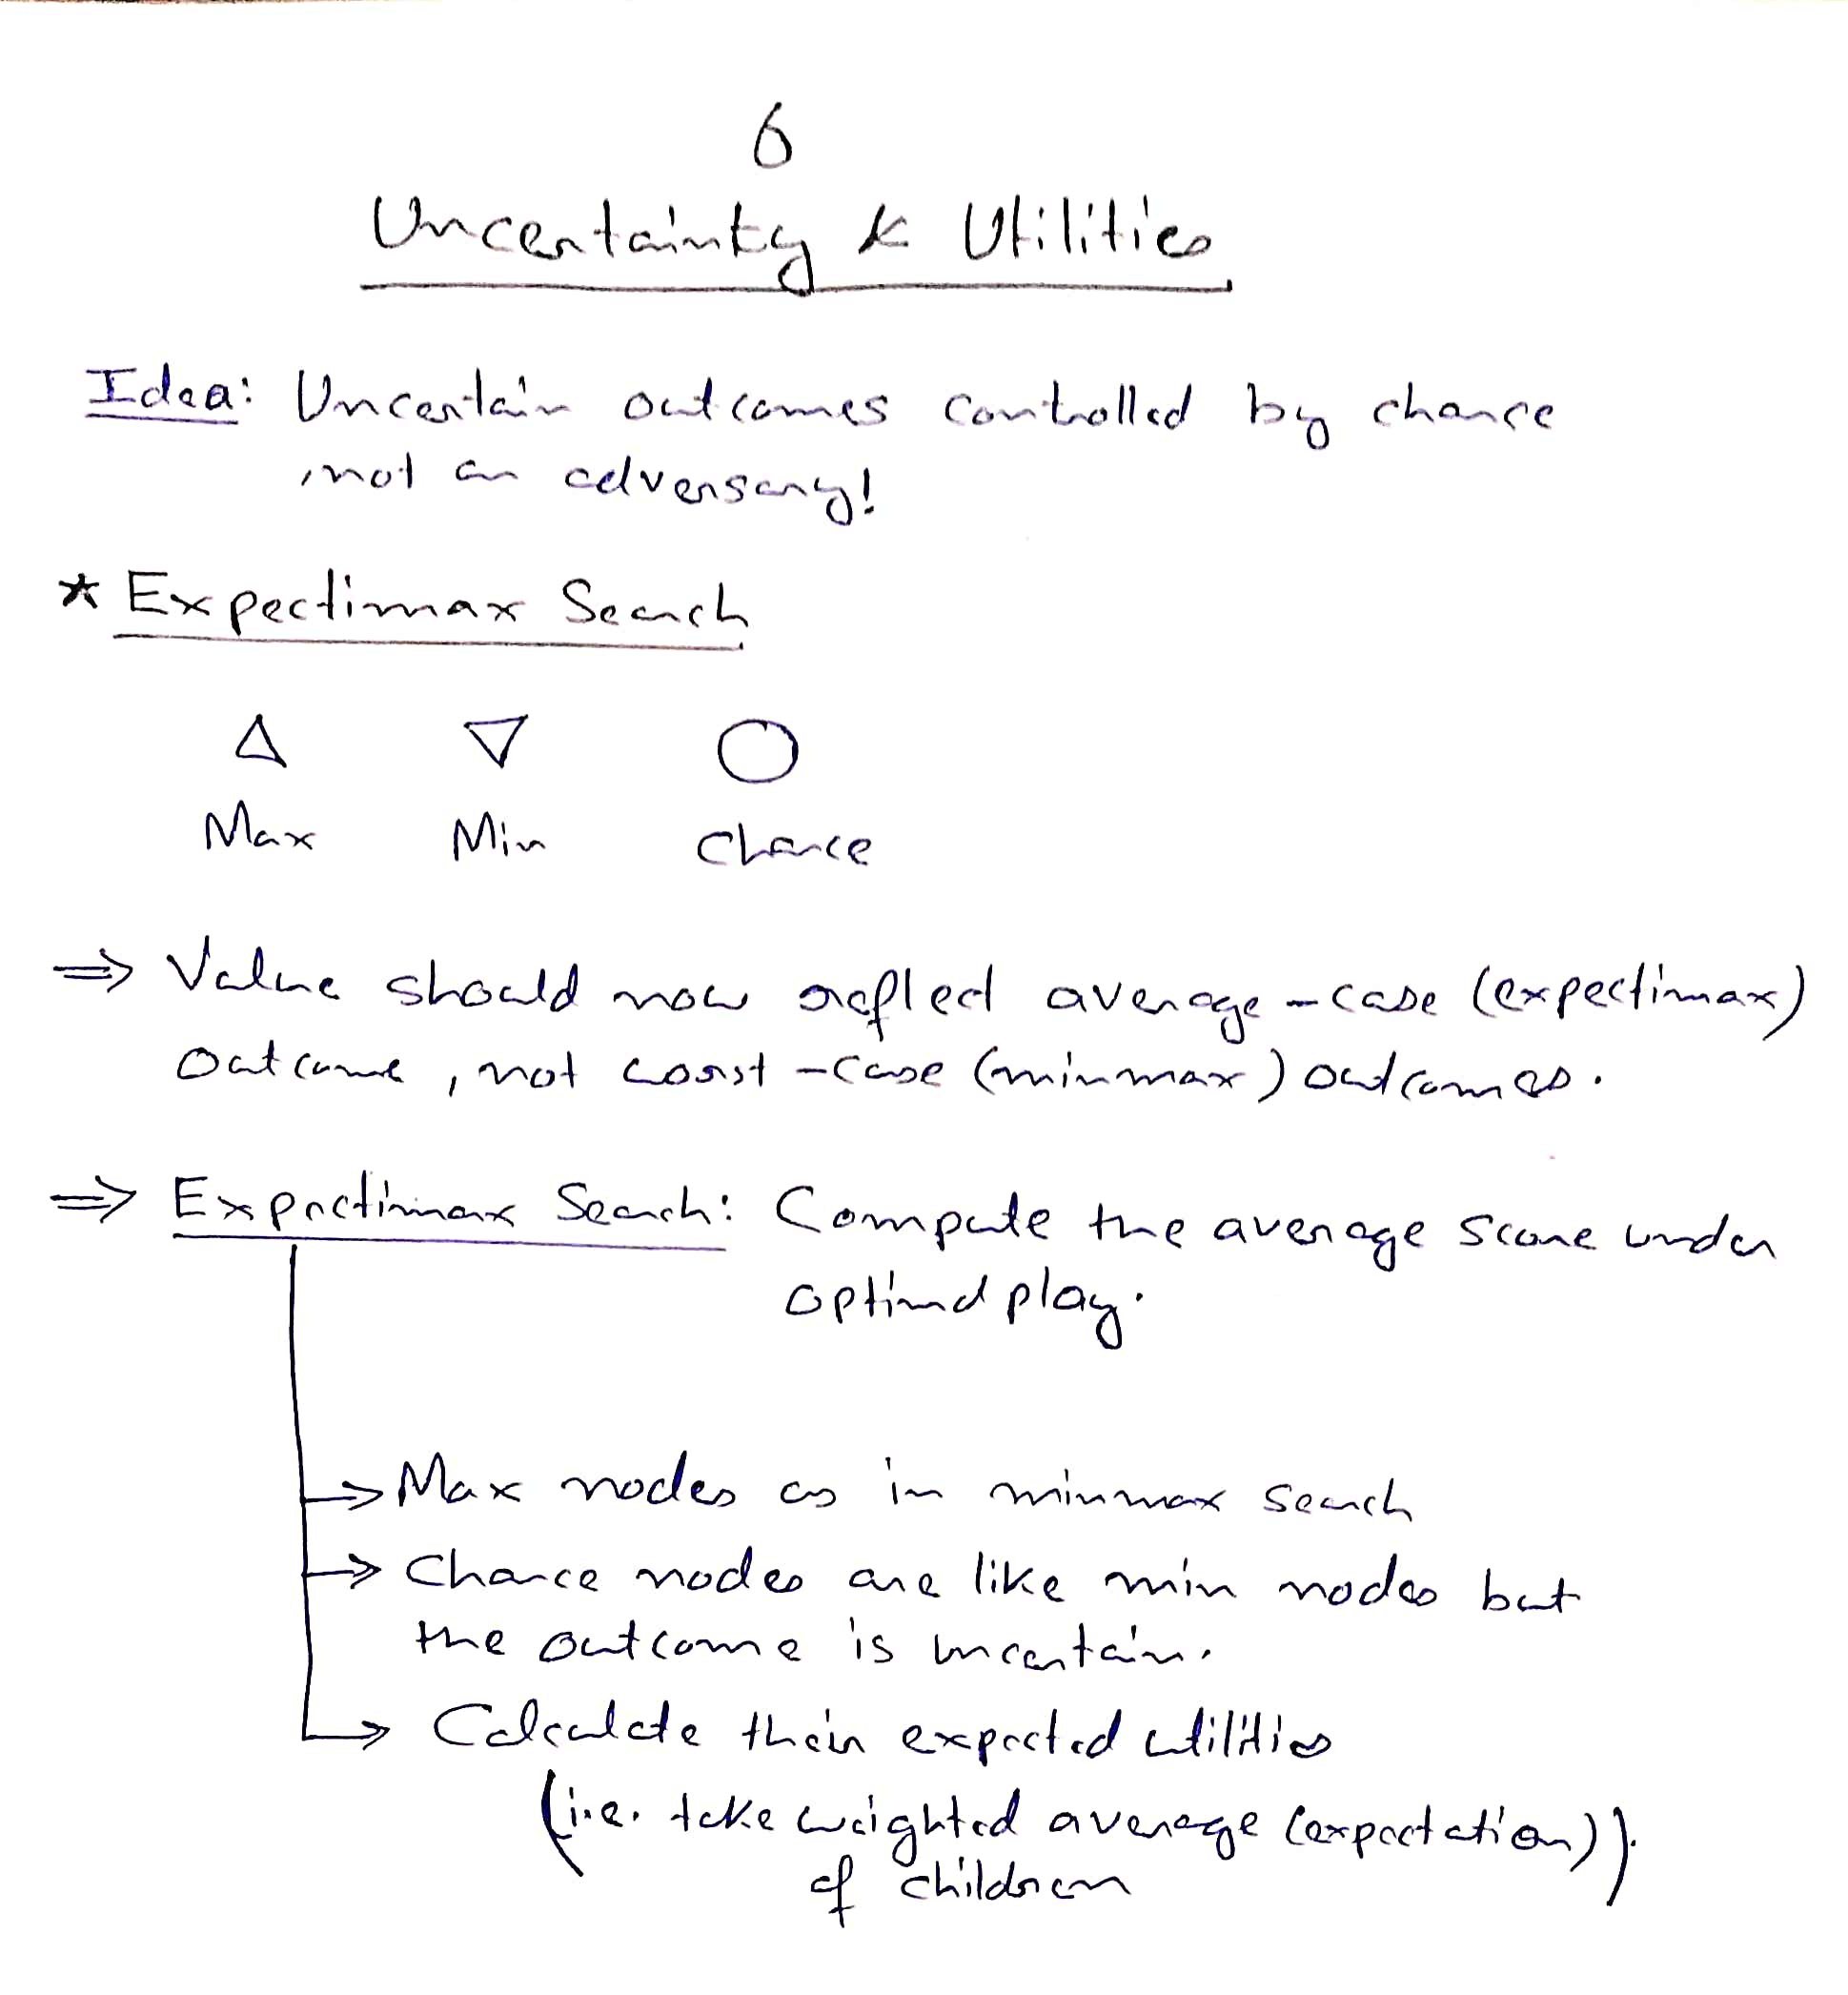 6
Uncertainty & Utilities
Idea: Uncertain outcomes controlled by chance
, not an adversary!
* Expectimax Search
Max Min Chance
⇒ Value should now reflect average-case (expectimax)
outcome, not worst-case (minmax) outcomes.
⇒ Expectimax Search: Compute the average score under
optimal play.
→ Max nodes as in minmax search
→ Chance nodes are like min nodes but
the outcome is uncertain.
→ Calculate their expected utilities
(i.e. take weighted average (expectation)).
of children